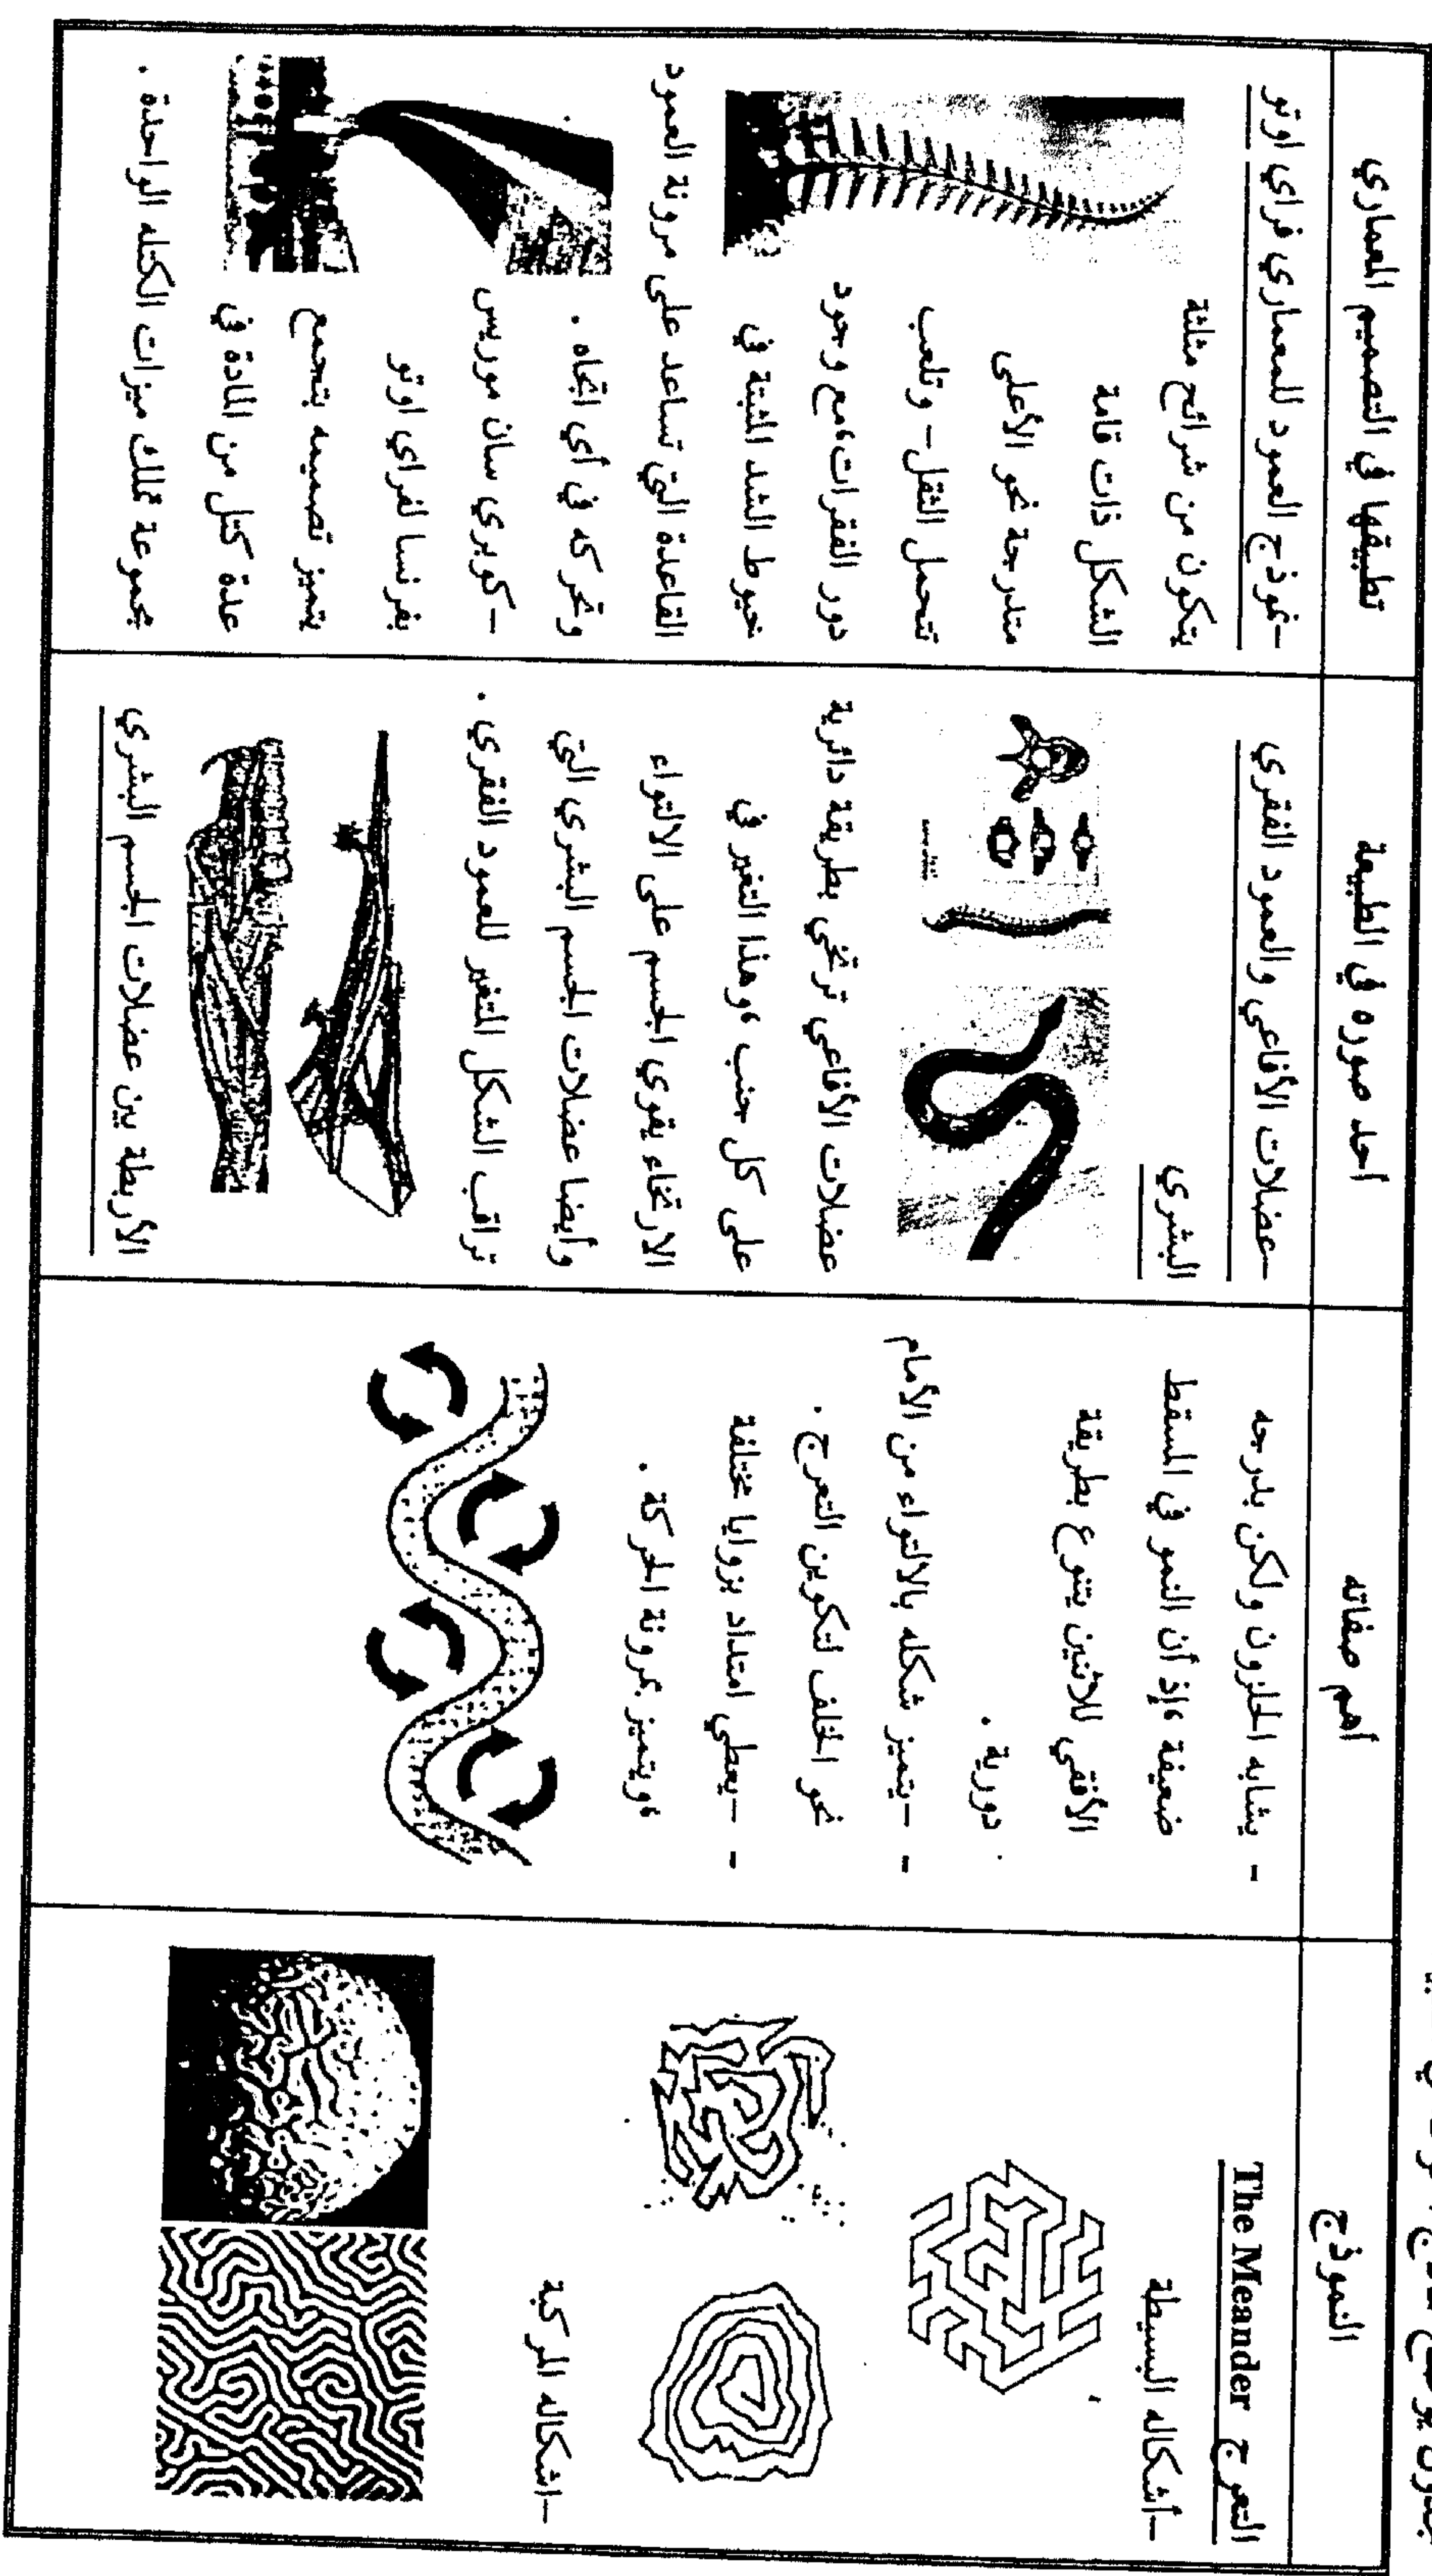 النموذج
أهم صفاته
أحد صوره في الطبيعة
تطبيقها في التصميم المعماري
التعرج The Meander
-أشكاله البسيطة
-اشكاله المركبة
- يشابه الحلزون ولكن بدرجه
ضعيفة ،إذ أن النمو في المسقط
الأفقي للاثنين يتنوع بطريقة
دورية .
- -يتميز شكله بالالتواء من الأمام
نحو الخلف لتكوين التعرج .
- -يعطي امتداد بزوايا مختلفة
،ويتميز بمرونة الحركة .
-عضلات الأفاعي والعمود الفقري
البشري
عضلات الأفاعي ترتخي بطريقة دائرية
على كل جنب ،وهذا التغير في
الارتخاء يقوى الجسم على الالتواء
وأيضا عضلات الجسم البشري التي
تراقب الشكل المتغير للعمود الفقري .
الأربطة بين عضلات الجسم البشري
-نموذج العمود للمعماري فراي اوتو
يتكون من شرائح مثلثة
الشكل ذات قامة
متدرجة نحو الأعلى
تتحمل الثقل- وتلعب
دور الفقرات،مع وجود
خيوط الشد المثبتة في
القاعدة التي تساعد على مرونة العمود
وتحركه في أي اتجاه .
-كوبري سان موريس
بفرنسا لفراي اوتو
يتميز تصميمه بتجمع
عدة كتل من المادة في
مجموعة تملك ميزات الكتله الواحدة .